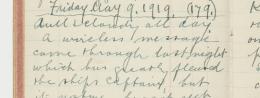 Friday May 9. 1919. (179)
Dull & cloudy all day
A wireless message
came through last night
which has greatly pleased
the ships captain, but